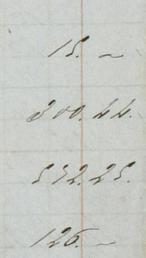 15. –
300.44.
572.25.
126. –